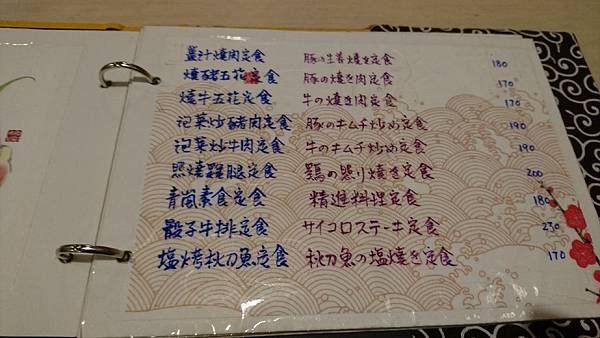 薑汁燒肉定食 豚の生姜焼き定食 180
燒豬五花定食 豚の焼き肉定食 170
燒牛五花定食 牛の焼き肉定食 170
泡菜炒豬肉定食 豚のキムチ炒め定食 190
泡菜炒牛肉定食 牛のキムチ炒め定食 190
照燒雞腿定食 鶏の照り焼き定食 200
青崗素食定食 精進料理定食 180
骰子牛排定食 サイコロステーキ定食 230
塩烤秋刀魚定食 秋刀魚の塩焼き定食 170